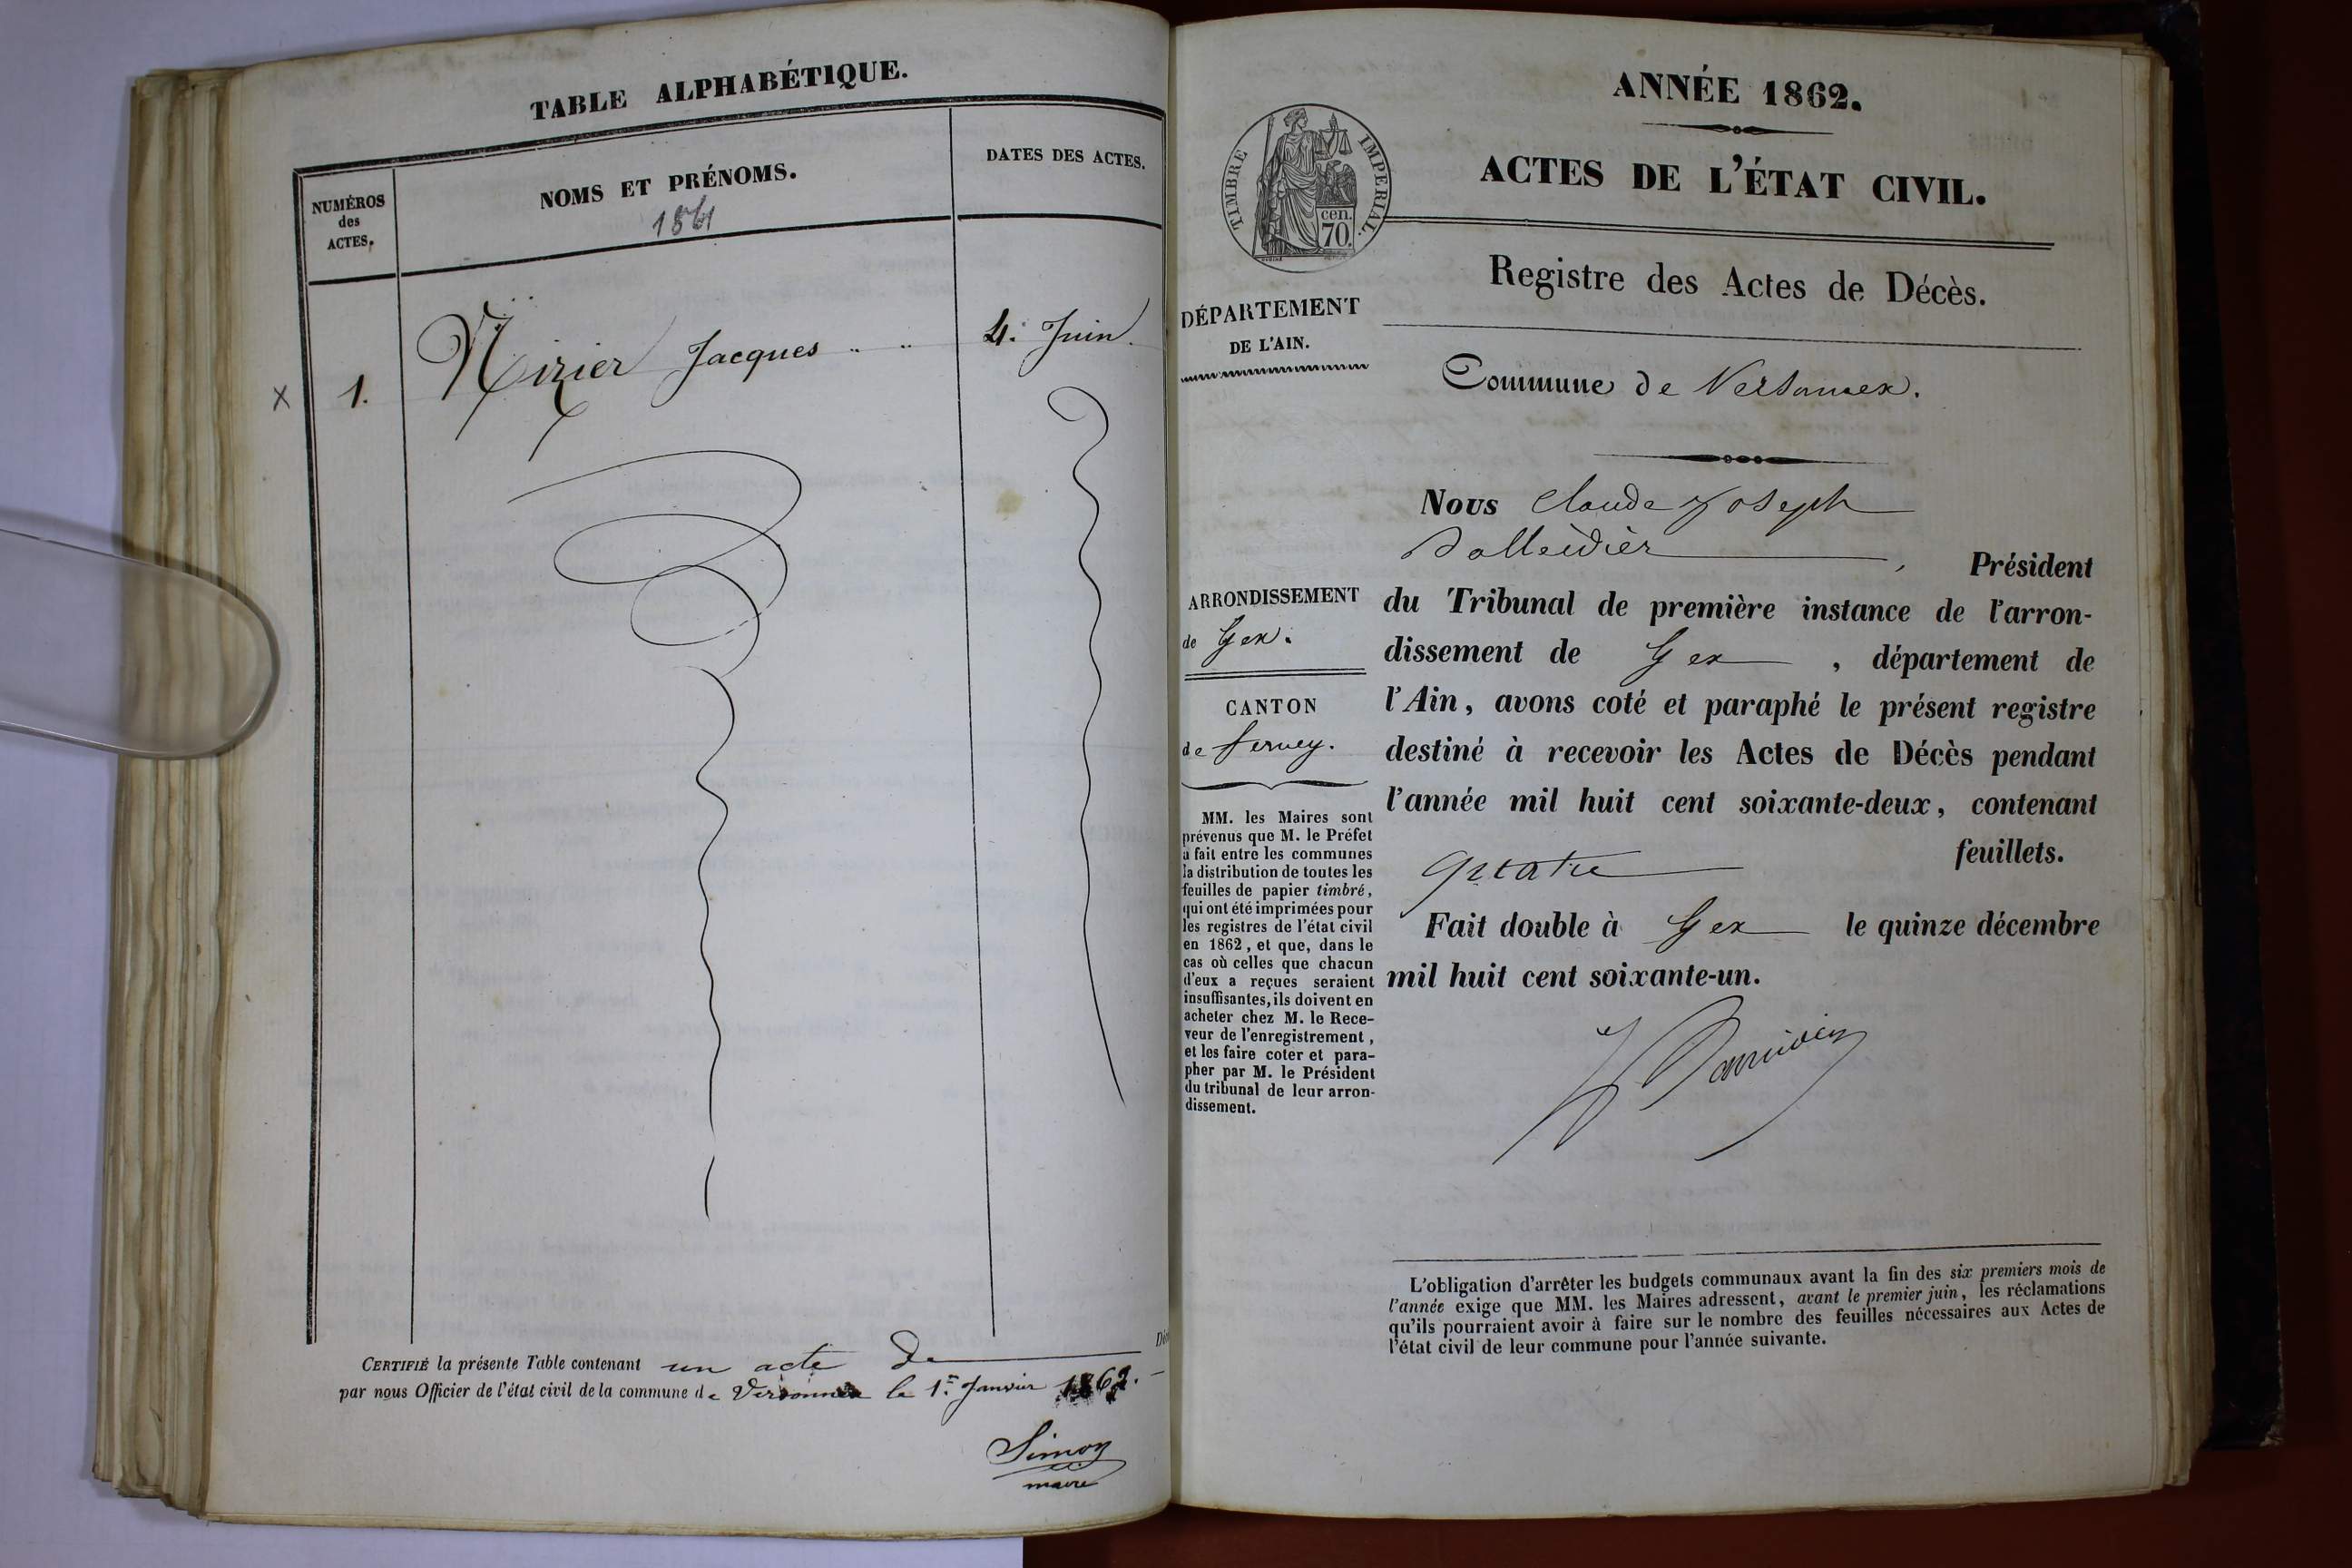 TABLE ALPHABÉTIQUE.
NUMÉROS
des
ACTES.
NOMS ET PRÉNOMS.
1861
DATES DES ACTES.
X 1. Nizier Jacques 4. Juin.
CERTIFIÉ la présente Table contenant un acte De
par nous Officier de l'état civil de la commune de Versonnex le 1.er Janvier 1862.
Simon
maire
ANNÉE 1862.
ACTES DE L'ÉTAT CIVIL.
TIMBRE IMPERIAL.
cen.
70.
Registre des Actes de Décès.
DÉPARTEMENT
DE L'AIN.
Commune de Versonnex.
ARRONDISSEMENT
de Gex.
CANTON
de Ferney.
MM. les Maires sont
prévenus que M. le Préfet
a fait entre les communes
la distribution de toutes les
feuilles de papier timbré,
qui ont été imprimées pour
les registres de l'état civil
en 1862, et que, dans le
cas où celles que chacun
d'eux a reçues seraient
insuffisantes, ils doivent en
acheter chez M. le Rece-
veur de l'enregistrement,
et les faire coter et para-
pher par M. le Président
du tribunal de leur arron-
dissement.
Nous Claude Joseph
, Président
du Tribunal de première instance de l'arron-
dissement de Gex, département de
l'Ain, avons coté et paraphé le présent registre
destiné à recevoir les Actes de Décès pendant
l'année mil huit cent soixante-deux, contenant
quatre feuillets.
Fait double à Gex le quinze décembre
mil huit cent soixante-un.
L'obligation d'arrêter les budgets communaux avant la fin des six premiers mois de
l'année exige que MM. les Maires adressent, avant le premier juin, les réclamations
qu'ils pourraient avoir à faire sur le nombre des feuilles nécessaires aux Actes de
l'état civil de leur commune pour l'année suivante.